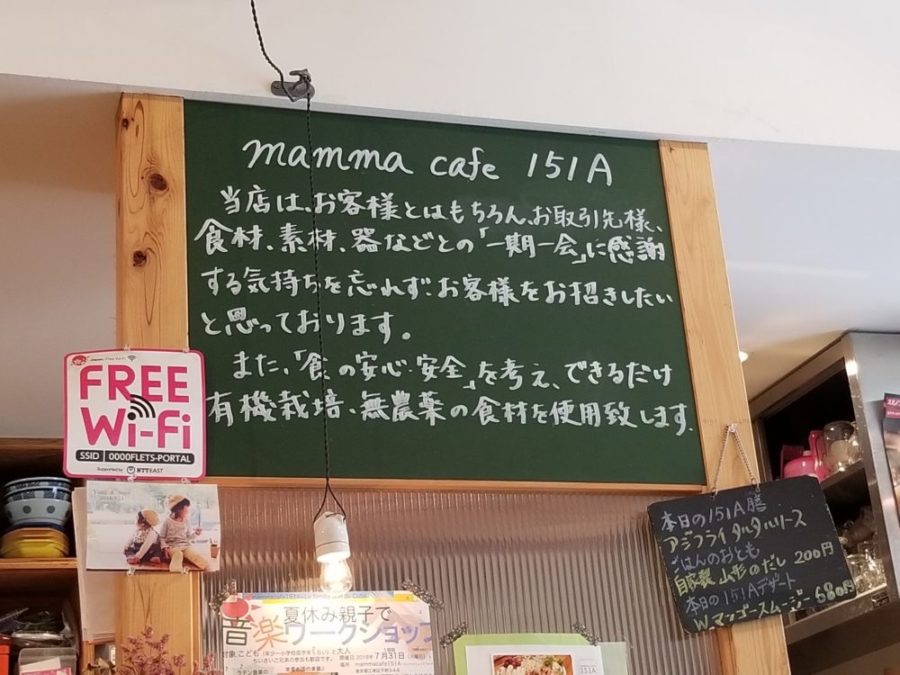 mamma cafe 151A
当店は、お客様とはもちろん、お取引先様、
食材、素材、器などとの「一期一会」に感謝
する気持ちを忘れず、お客様をお招きしたい
と思っております。
また、「食の安心・安全」を考え、できるだけ
有機栽培、無農薬の食材を使用致します。
FREE
Wi-Fi
SSID 0000FLETS-PORTAL
Supported by NTT EAST
本日の151A膳
アジフライタルタルソース
ごはんのおとも
自家製 山形のだし 200円
本日の151Aデザート
W.マンゴースムージー 680円
夏休み親子で
音楽ワークショップ
対象 こども
と大人
7月31日
場所 mammacafe151A
151A